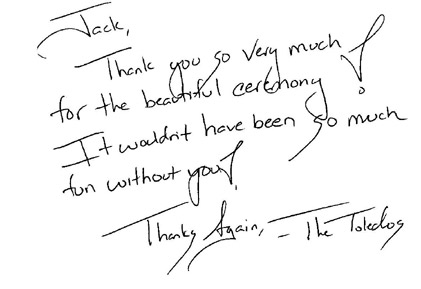 Jack,
Thank you so very much!
for the beautiful ceremony
It wouldn't have been so much
fun without you!
Thanks Again, - The Toledos